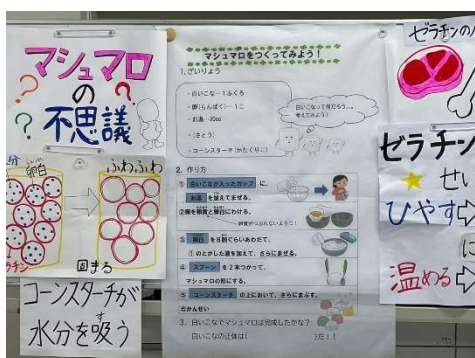 マシュマロ
の
不思議
卵白
ふわふわ
固まる
コーンスターチが
水分を吸う
マシュマロをつくってみよう！
1. ざいりょう
・白いこな…1ふくろ
・卵（らんぱく）…1こ
・お湯…30cc
・（さとう）
・コーンスターチ（かたくりこ）
白いこなって何だろう…。
考えてみよう！
2. 作り方
① 白いこなが入ったカップ に
お湯 を加えてまぜる。
②卵を卵黄と卵白にわける。
③ 卵白 を8回くらいあわだて、
①のとかした液を加えて、さらにまぜる。
④ スプーン を2本つかって、
マシュマロの形にする。
⑤ コーンスターチ の上において、さらにまぶす。
⑥かんせい
3. 白いこなでマシュマロは完成したかな？
白いこなの正体は（　　　）だ！！
ゼラチンの
ゼラチン
せい
ひやす⇨
に
温める⇨